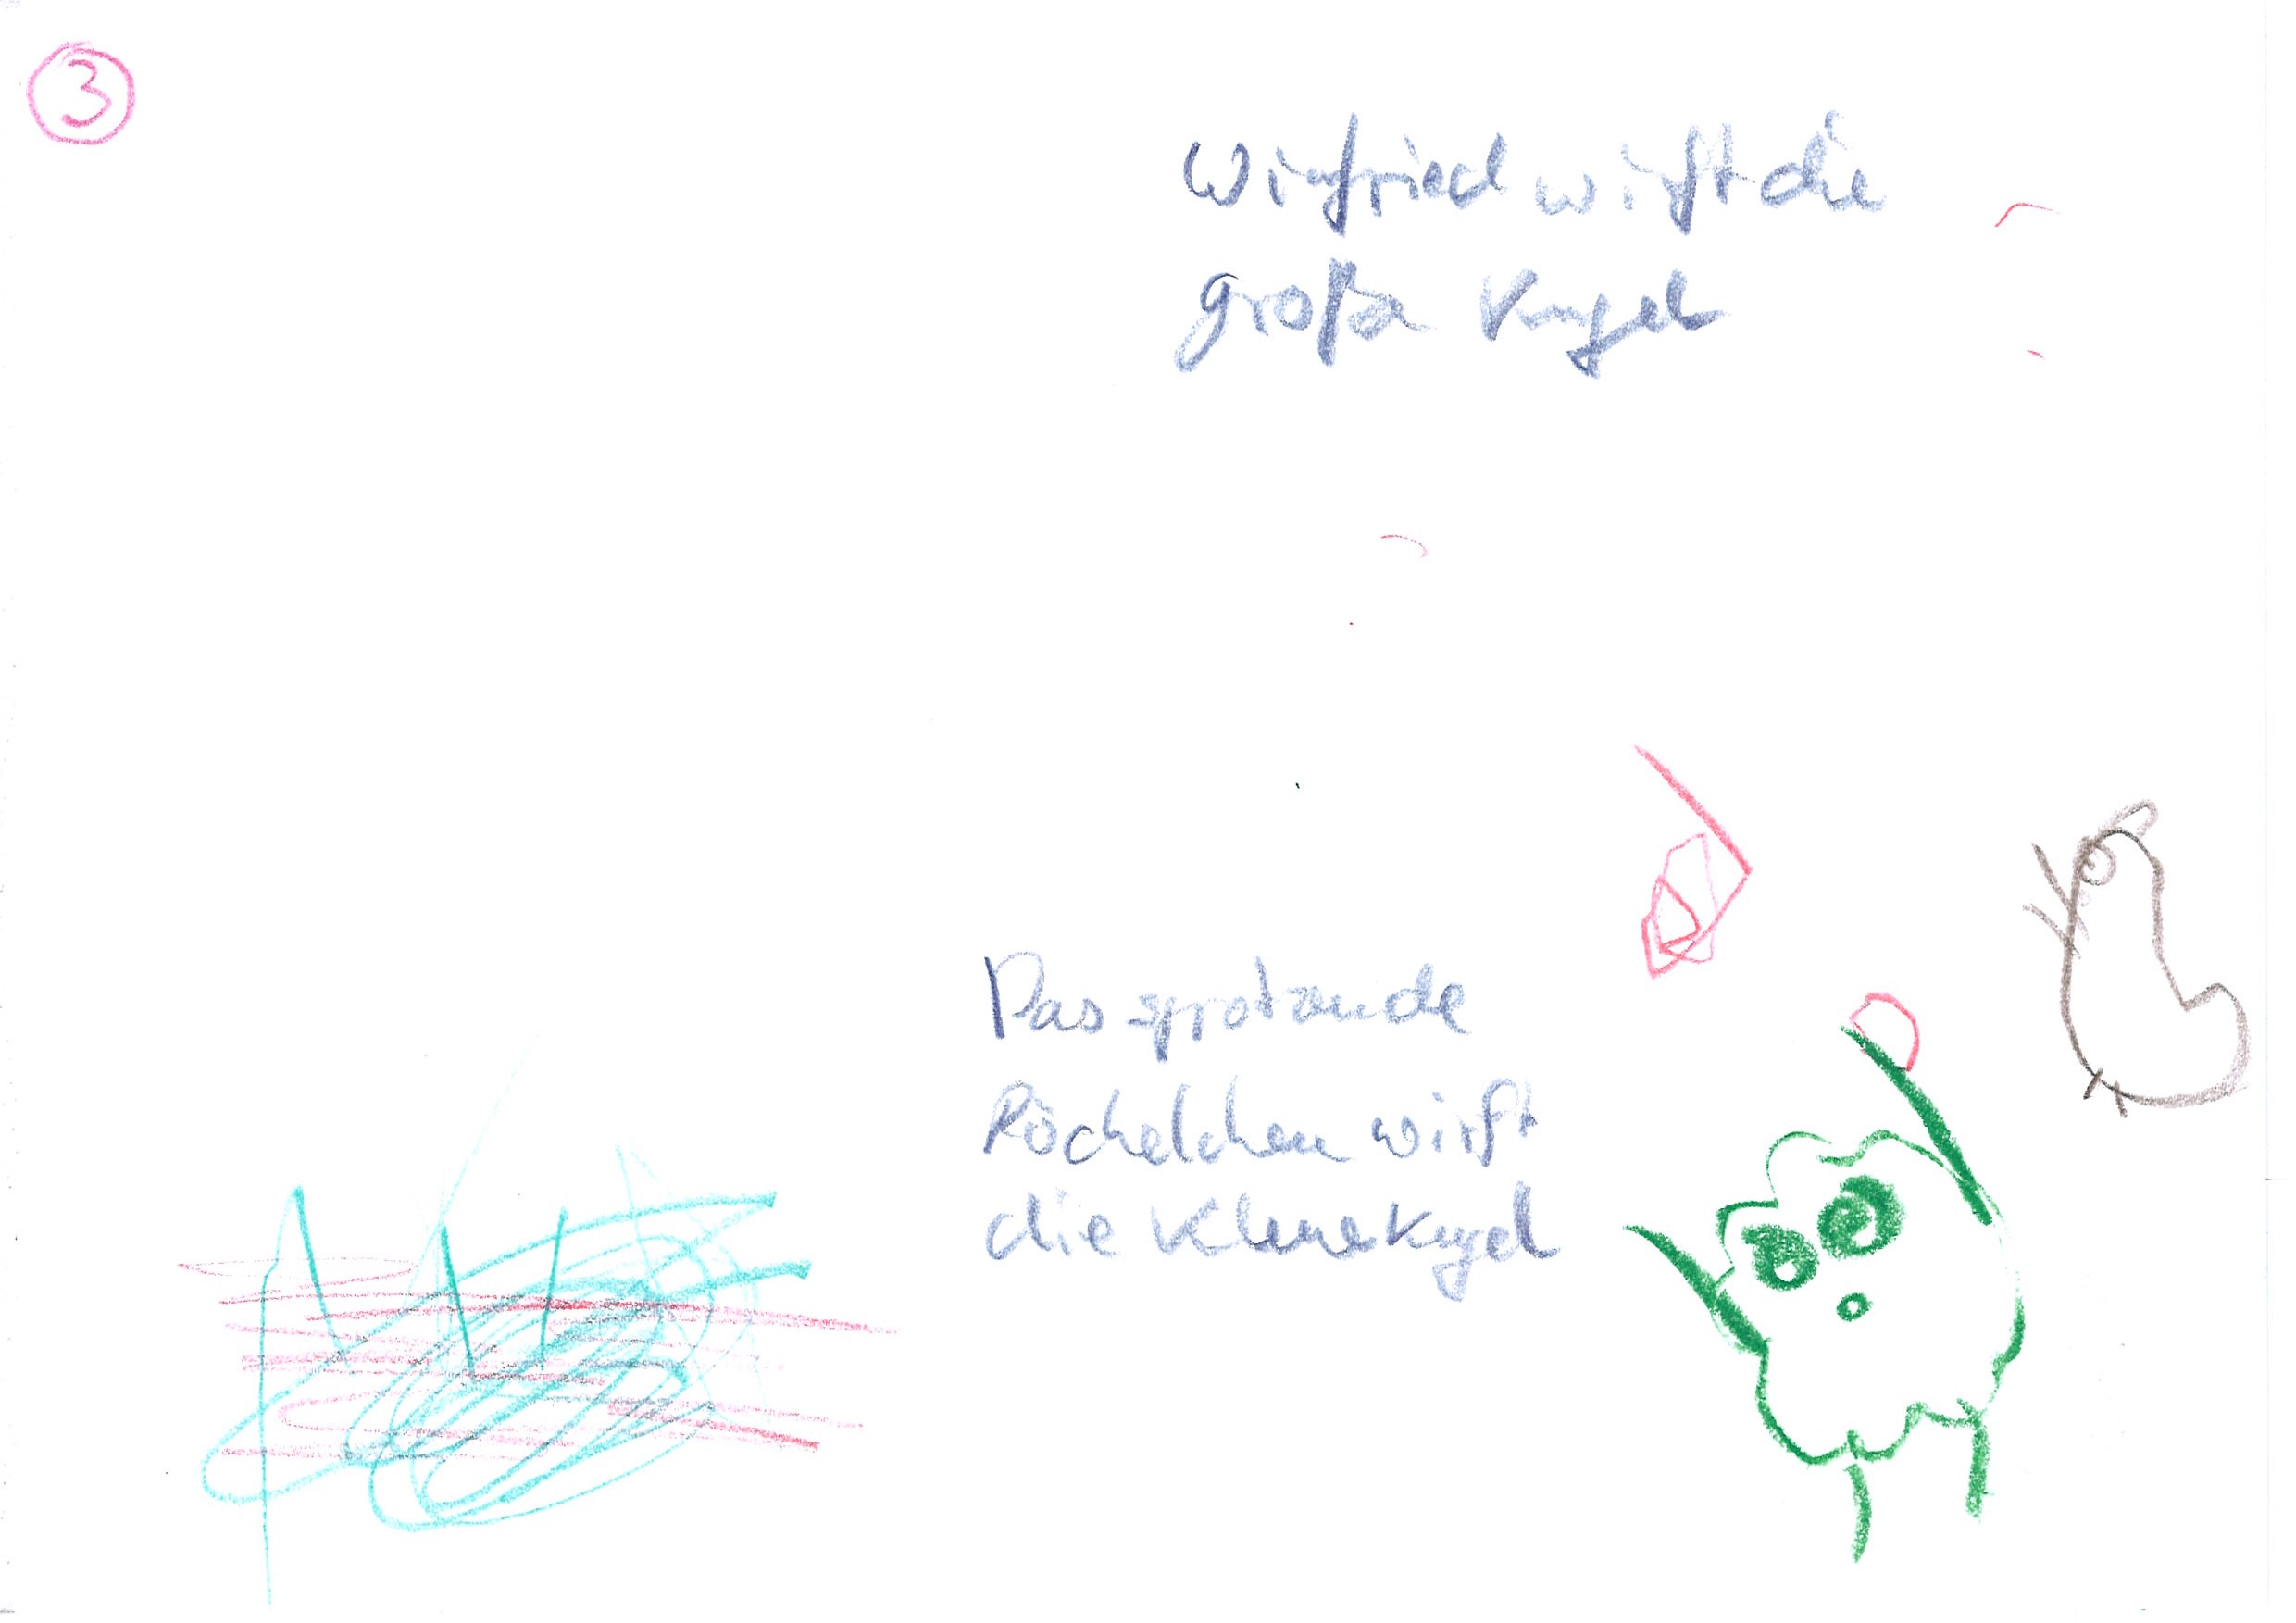 3
Winfried wirft die
große Kugel
Das
Röchelchen wirft
die kleine Kugel